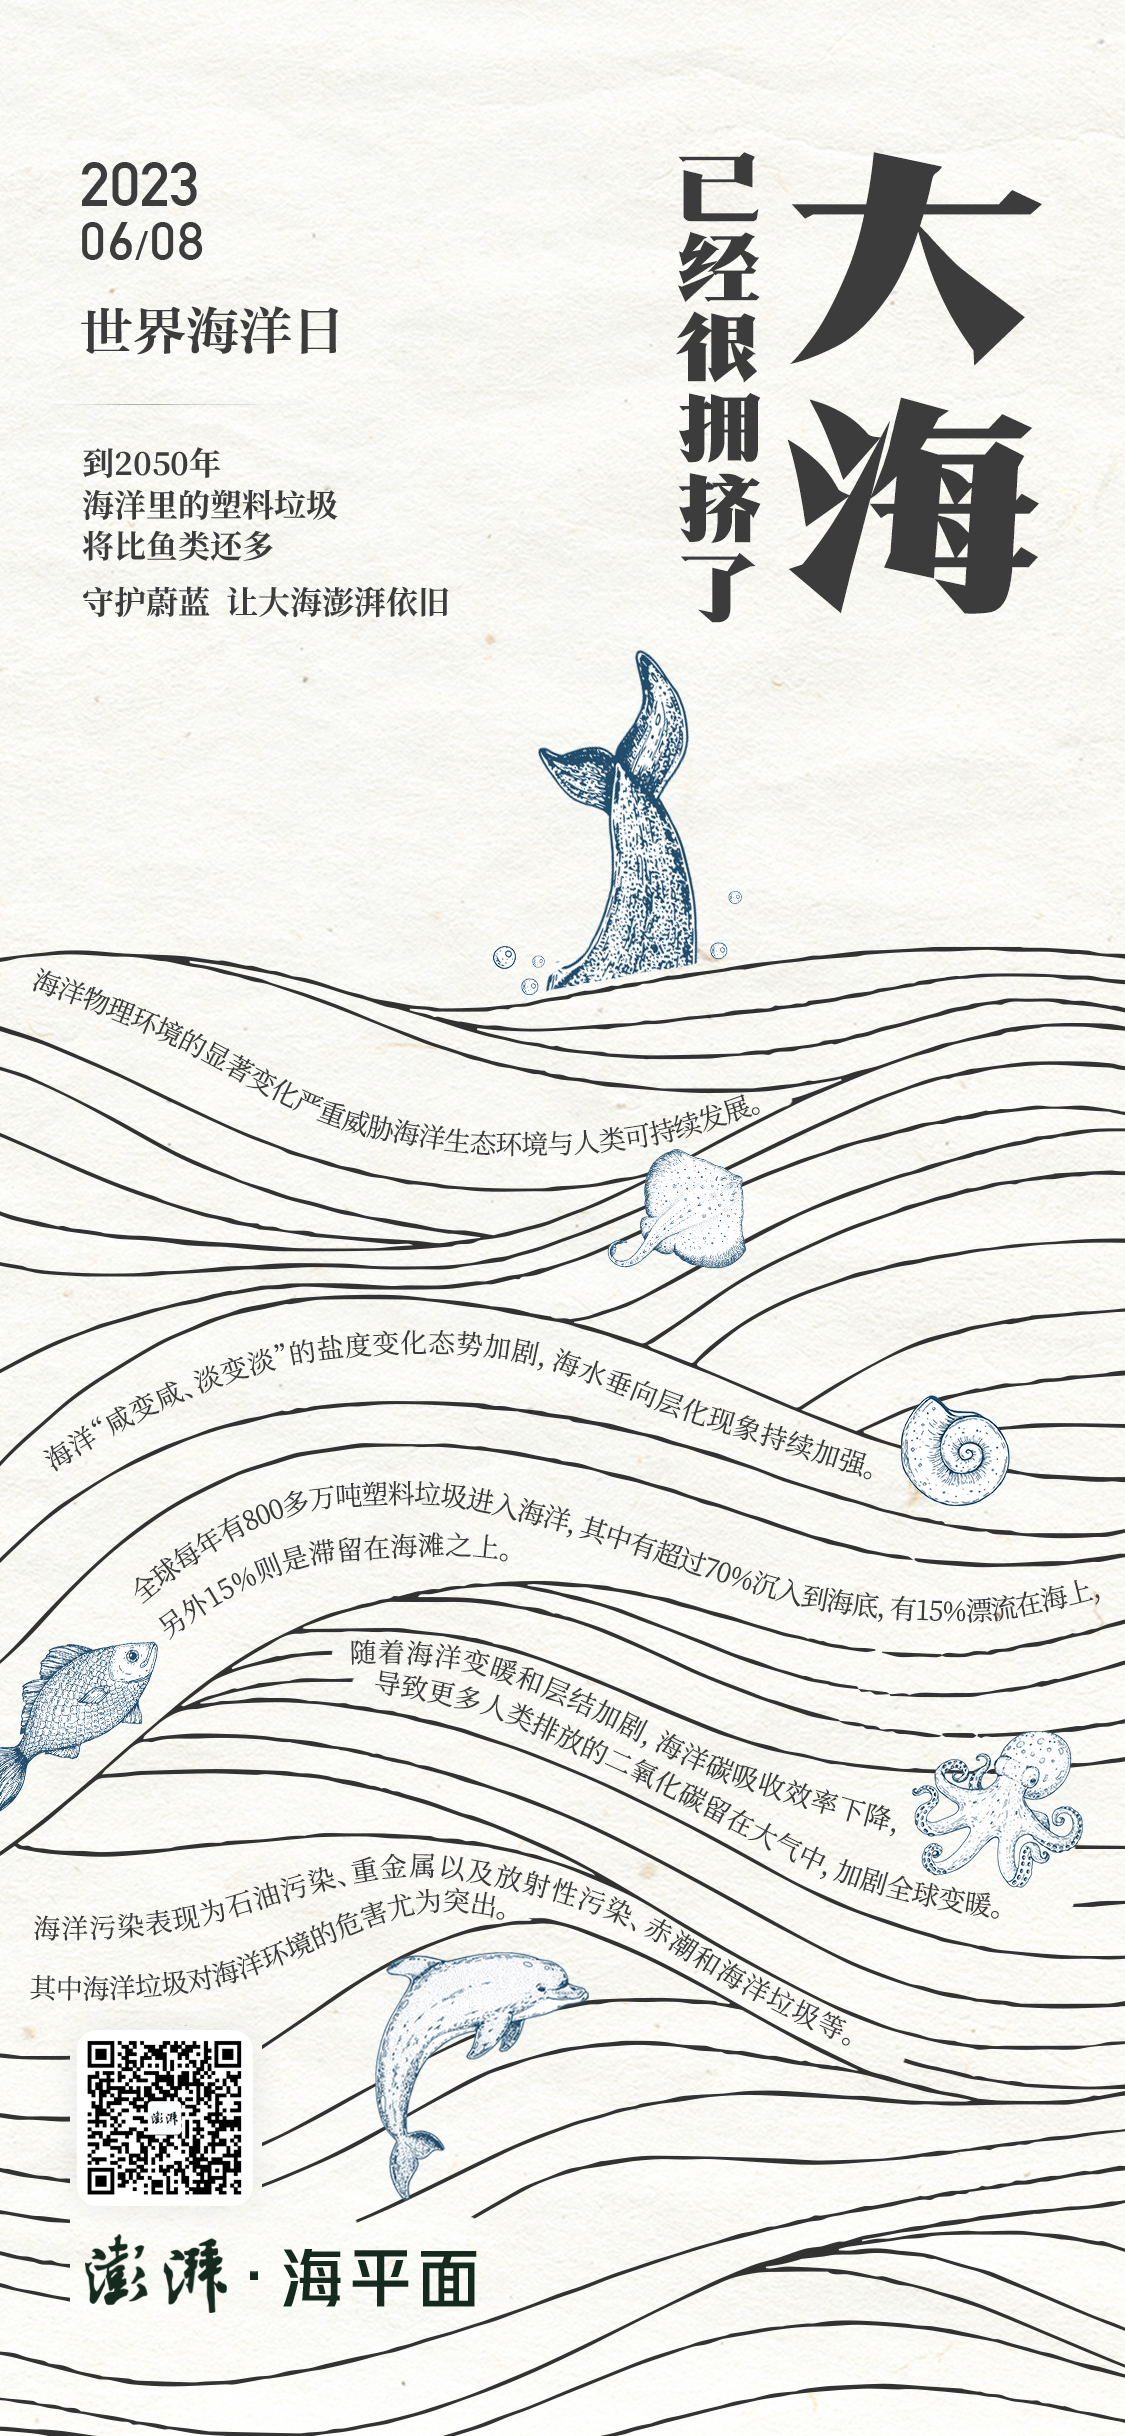 2023
06/08
世界海洋日
到2050年
海洋里的塑料垃圾
将比鱼类还多
守护蔚蓝 让大海澎湃依旧
大海
已经很拥挤了
海洋物理环境的显著变化严重威胁海洋生态环境与人类可持续发展。
海洋“咸变咸、淡变淡”的盐度变化态势加剧，海水垂向层化现象持续加强。
全球每年有800多万吨塑料垃圾进入海洋，其中有超过70%沉入到海底，有15%漂流在海上，
另外15%则是滞留在海滩之上。
随着海洋变暖和层结加剧，海洋碳吸收效率下降，
导致更多人类排放的二氧化碳留在大气中，加剧全球变暖。
海洋污染表现为石油污染、重金属以及放射性污染、赤潮和海洋垃圾等。
其中海洋垃圾对海洋环境的危害尤为突出。
澎湃
澎湃·海平面